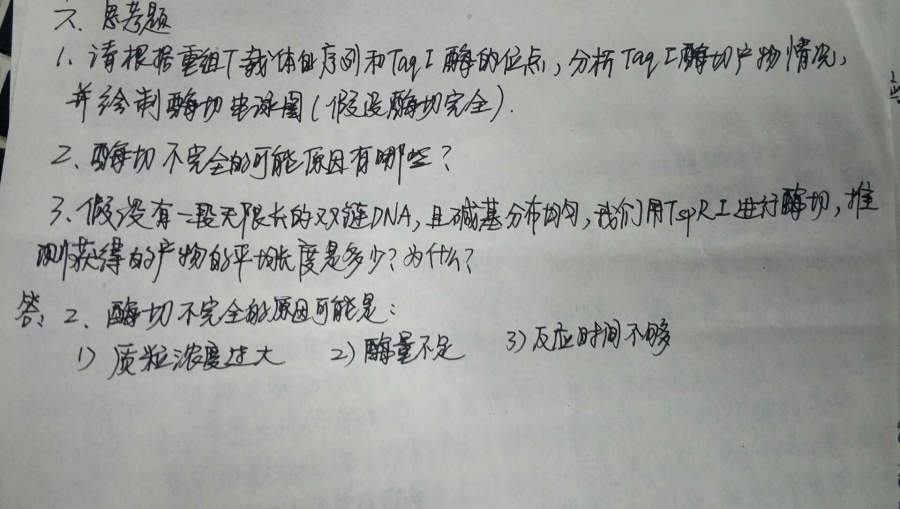 六、思考题
1、请根据重组T载体的序列和TaqI酶的位点,分析TaqI酶切产物情况,
并绘制酶切电泳图(假设酶切完全).
2、酶切不完全的可能原因有哪些?
3、假设有一段无限长的双链DNA,且碱基分布均匀,我们用TspRI进行酶切,推
测获得的产物的平均长度是多少?为什么?
答:2、酶切不完全的原因可能是:
1)质粒浓度过大 2)酶量不足 3)反应时间不够